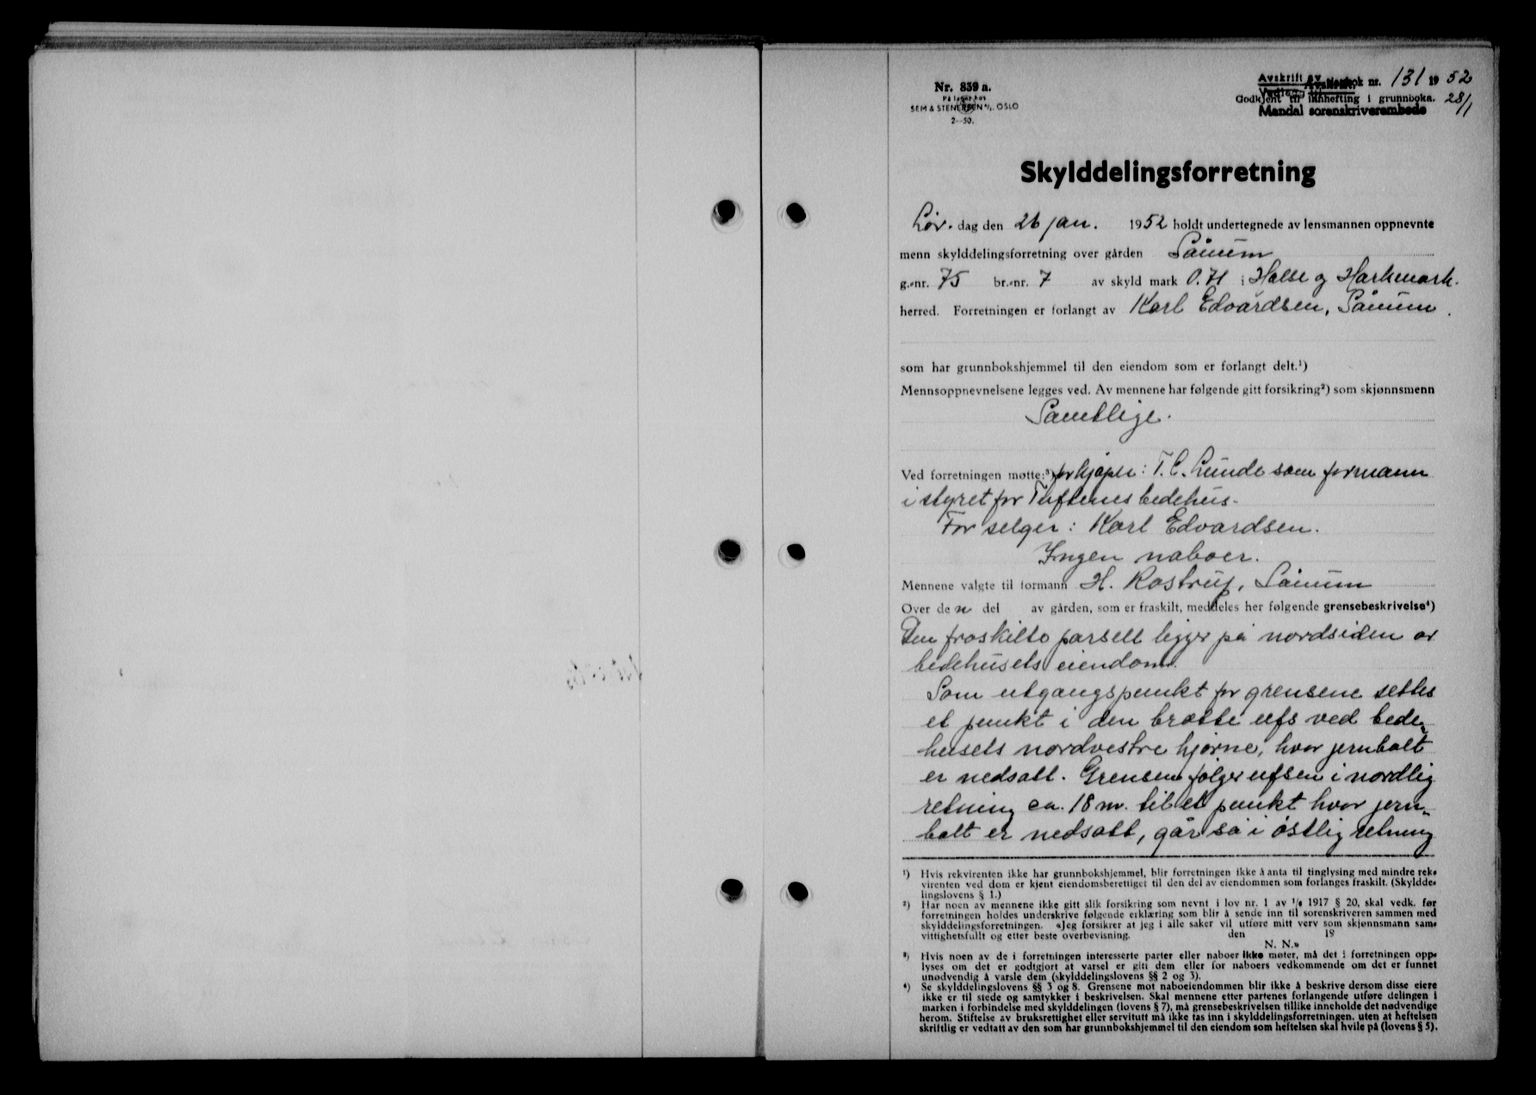 Nr. 839 a.
På lager hos
SEM & STENERSEN A/S, OSLO
2--50.
Avskrift av
Vedlegg til
dagbok nr. 131 1952
Godkjent til innhefting i grunnboka. 28/1
Mandal sorenskriverembede
Skylddelingsforretning
Lør. dag den 26 jan. 1952 holdt undertegnede av lensmannen oppnevnte
menn skylddelingsforretning over gården Sånum
g.-nr. 75 br.-nr. 7 av skyld mark 0.71 i Halse og Harkmark.
herred. Forretningen er forlangt av Karl Edvardsen, Sånum.
som har grunnbokshjemmel til den eiendom som er forlangt delt.¹)
Mennsoppnevnelsene legges ved. Av mennene har følgende gitt forsikring²) som skjønnsmenn
Samtlige.
Ved forretningen møtte:³) for kjøper: T. C. Lunde som formann
i styret for Tuftenes bedehus.
For selger: Karl Edvardsen.
Ingen naboer.
Mennene valgte til formann H. Rostrup, Sånum
Over den del av gården, som er fraskilt, meddeles her følgende grensebeskrivelse⁴)
Den fraskilte parsell ligger på nordsiden av
bedehusets eiendom.
Som utgangspunkt for grensene settes
et punkt i den bratte ufs ved bede-
husets nordvestre hjørne, hvor jernbolt
er nedsatt. Grensen følger ufsen i nordlig
retning ca. 18 m. til et punkt hvor jern-
bolt er nedsatt, går så i østlig retning
¹) Hvis rekvirenten ikke har grunnbokshjemmel, blir forretningen ikke å anta til tinglysing med mindre rek-
virenten ved dom er kjent eiendomsberettiget til den del av eiendommen som forlanges fraskilt. (Skyldde-
lingslovens § 1.)
²) Har noen av mennene ikke gitt slik forsikring som nevnt i lov nr. 1 av 1/6 1917 § 20, skal vedk. før
forretningen holdes underskrive følgende erklæring som blir å sende inn til sorenskriveren sammen med
skylddelingsforretningen. «Jeg forsikrer at jeg i alle saker vil utføre mitt verv som skjønnsmann sam-
vittighetsfullt og etter beste overbevisning. den 19
N. N.»
³) Hvis noen av de i forretningen interesserte parter eller naboer ikke møter, må det i forretningen opp-
lyses om det er godtgjort at varsel er gitt dem eller for naboers vedkommende om det er funnet
unødvendig å varsle dem (skylddelingslovens §§ 2 og 3).
⁴) Se skylddelingslovens §§ 3 og 8. Grensene mot naboeiendommen blir ikke å beskrive dersom disse eiere
ikke er til stede og samtykker i beskrivelsen. Skal mennene etter partenes forlangende utføre delingen i
marken i forbindelse med skylddelingen (lovens § 7), må grensebeskrivelsen tillike inneholde det nødvendige
herom. Stiftelse av bruksrettighet eller servitutt må ikke tas inn i skylddelingsforretningen, uten at heftelsen
skriftlig er vedtatt av den som har grunnbokshjemmel til den eiendom som heftelsen skal hvile på (lovens § 5).